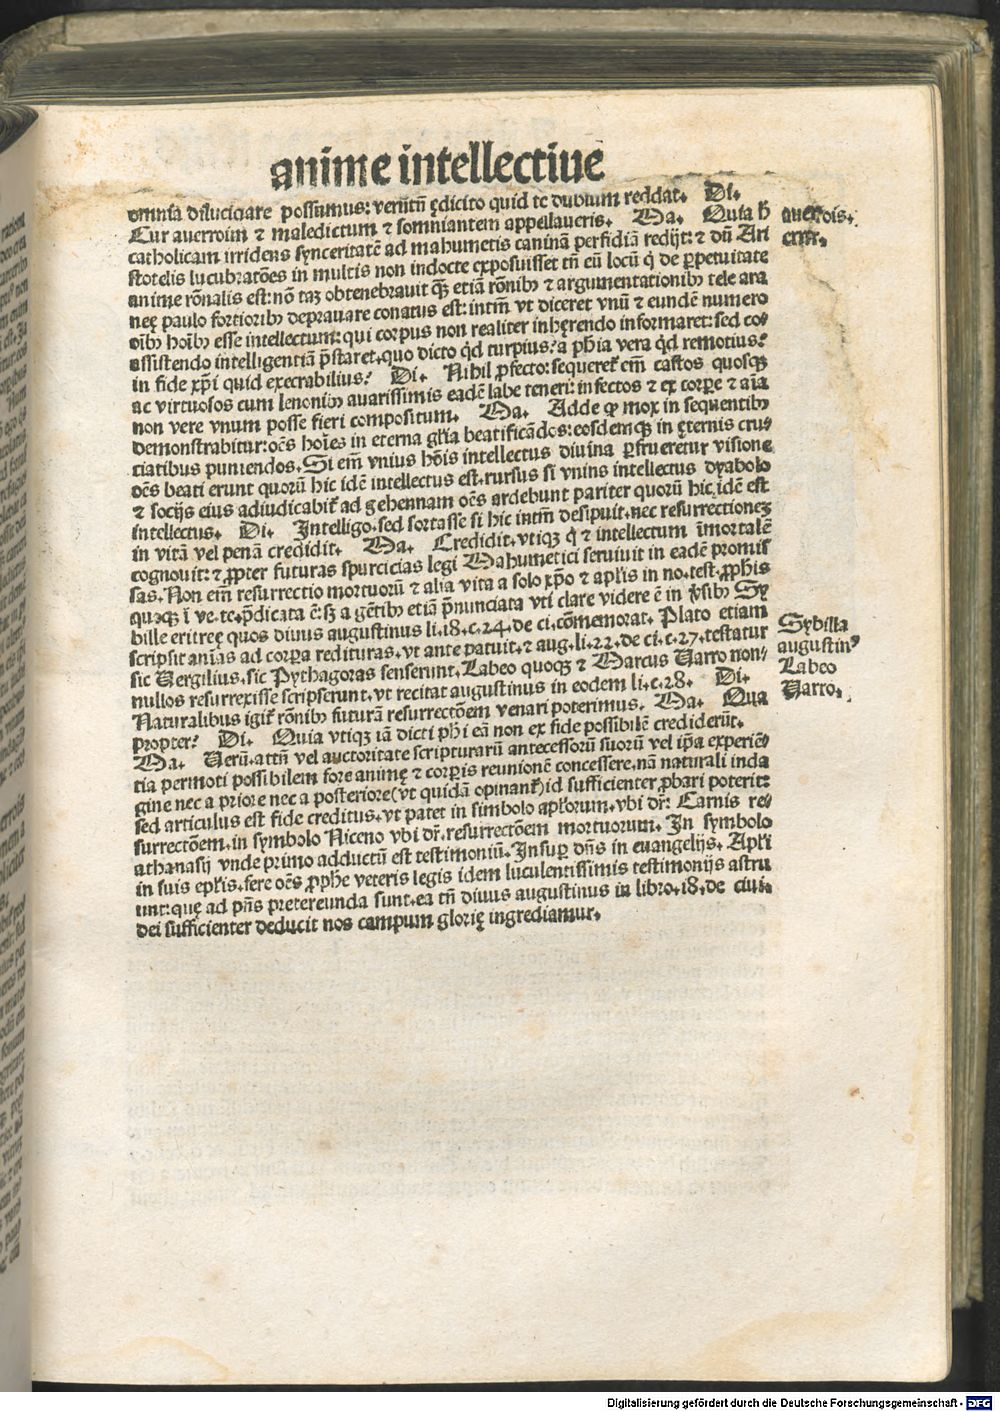 anime intellectiue
omnia dilucidare possumus: verūtn̄ ędicito quid te dubium reddat. Di.
Cur auerroim ⁊ maledictum ⁊ somniantem appellaueris. Ma. Quia hͦ
catholicam irridens synceritatē ad mahumetis caninā perfidiā redijt: ⁊ dū Ari
stotelis lucubratōes in multis non indocte exposuisset tn̄ cū locū q̇ de ꝑpetuitate
anime rōnalis est: nō tā obtenebrauit qꝫ etiā rōnibꝰ ⁊ argumentationibꝰ tele ara
neę paulo fortioribꝰ deprauare conatus est: intm̄ vt diceret vnū ⁊ eundē numero
oībꝰ hoībꝰ esse intellectum: qui corpus non realiter inhęrendo informaret: sed co-
assistendo intelligentiā p̄staret. quo dicto qͥd turpius? a ph̄ia vera qͥd remotius?
in fide xp̄i quid execrabilius? Di. Nihil ꝓfecto: sequeret᷑ em̄ castos quosqꝫ
ac virtuosos cum lenonibꝰ auarissimis eadē labe teneri: infectos ⁊ ex corꝑe ⁊ aīa
non vere vnum posse fieri compositum. Ma. Adde ꝙ mox in sequentibꝰ
demonstrabitur: oēs hoīes in eterna gl̄ia beatificādos: eosdemqꝫ in ęternis cru-
ciatibus puniendos. Si em̄ vnius hoīs intellectus diuina ꝑfrueretur visione
oēs beati erunt quorū hic idē intellectus est. rursus si vnius intellectus dyabolo
⁊ socijs eius adiudicabit᷑ ad gehennam oēs ardebunt pariter quorū hic idē est
intellectus. Di. Intelligo. sed fortasse si hic intm̄ desipuit. nec resurrectionēz
in vitā vel penā credidit. Ma. Credidit. vtiqꝫ q̇ ⁊ intellectum īmortalē
cognouit: ⁊ ꝓpter futuras spurcicias legi Mahumetici seruiuit in eadē promis
sas. Non em̄ resurrectio mortuorū ⁊ alia vita a solo xp̄o ⁊ apl̄is in no. test. ꝓphis
quoqꝫ ī ve. te. p̄dicata ē: sꝫ a gētibꝰ etiā p̄nunciata vti clare videre ē in v̄sibꝰ Sy
bille eritreę quos diuus augustinus li. 18. c. 24. de ci. cōmemorat. Plato etiam
scripsit anīas ad corꝑa redituras. vt ante patuit. ⁊ aug. li. 22. de ci. c. 27. testatur
sic Vergilius. sic Pythagoras senserunt. Labeo quoqꝫ ⁊ Marcus Varro non-
nullos resurrexisse scripserunt. vt recitat augustinus in eodem li. c. 28. Di.
Naturalibus igit᷑ rōnibꝰ futurā resurrectōem venari poterimus. Ma. Qua
propter? Di. Quia vtiqꝫ iā dicti ph̄i eā non ex fide possibilē crediderūt.
Ma. Verū. attn̄ vel auctoritate scripturarū antecessorū suorū vel ip̄a experiē-
tia permoti possibilem fore animę ⁊ corꝑis reunionē concessere. nā naturali inda
gine nec a priore nec a posteriore (vt quidā opinant᷑) id sufficienter ꝓbari poterit:
sed articulus est fide creditus. vt patet in simbolo apl̄orum. vbi dr̄: Carnis re-
surrectōem. in symbolo Niceno vbi dr̄. resurrectōem mortuorum. In symbolo
athanasij vnde primo adductū est testimoniū. Insuꝑ dn̄s in euangelijs. Apl̄i
in suis epl̄is. fere oēs ꝓphe veteris legis idem luculentissimis testimonijs astru
unt: quę ad pn̄s pretereunda sunt. ea tn̄ diuus augustinus in libro. 18. de ciui.
dei sufficienter deducit nos campum glorię ingrediamur.
auerrois.
error.
Sybilla
augustinꝰ
Labeo
Varro.
Digitalisierung gefördert durch die Deutsche Forschungsgemeinschaft - DFG